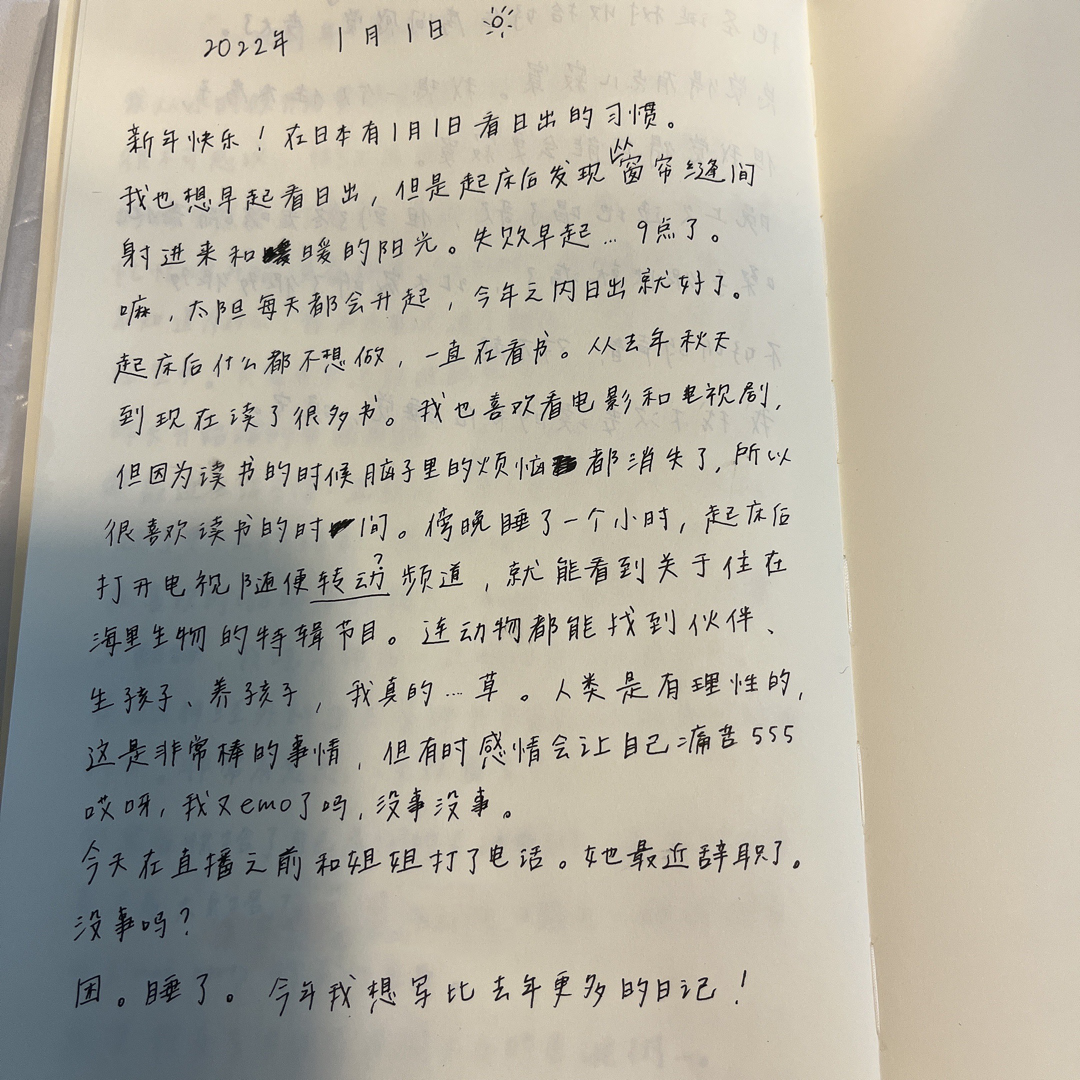 2022年 1月1日
新年快乐！在日本有1月1日看日出的习惯。
我也想早起看日出，但是起床后发现从窗帘缝间
射进来和暖的阳光。失败早起…9点了。
嘛，太阳每天都会升起，今年之内日出就好了。
起床后什么都不想做，一直在看书。从去年秋天
到现在读了很多书。我也喜欢看电影和电视剧，
但因为读书的时候脑子里的烦恼都消失了，所以
很喜欢读书的时间。傍晚睡了一个小时，起床后
打开电视随便转动?频道，就能看到关于住在
海里生物的特辑节目。连动物都能找到伙伴、
生孩子、养孩子，我真的…草。人类是有理性的，
这是非常棒的事情，但有时感情会让自己痛苦555
哎呀，我又emo了吗，没事没事。
今天在直播之前和姐姐打了电话。她最近辞职了。
没事吗？
困。睡了。今年我想写比去年更多的日记！